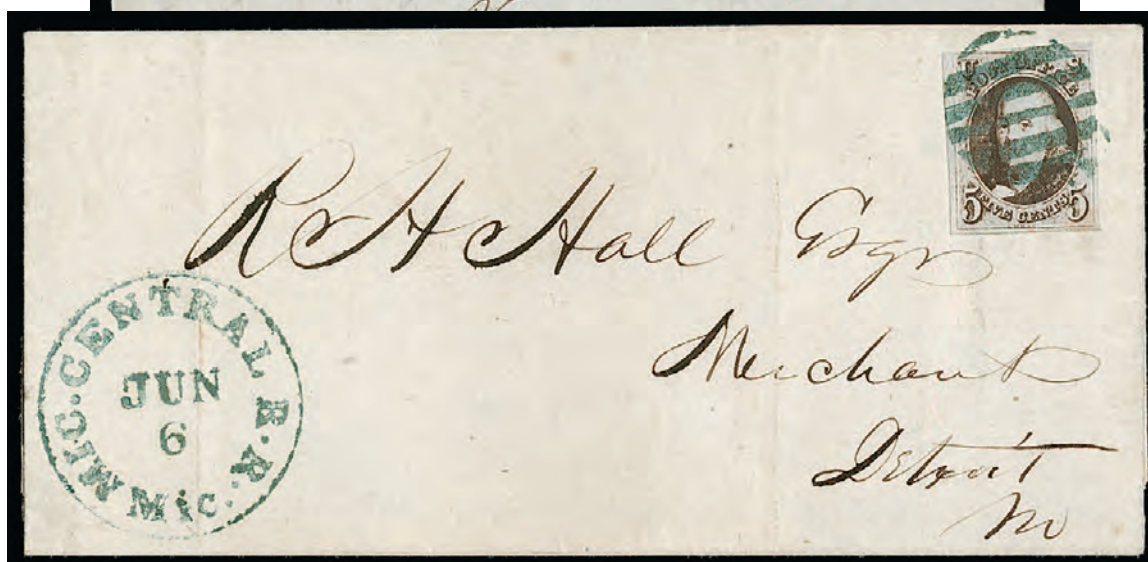 U S
POST OFFICE
5 FIVE CENTS 5
R H Hall Esqr
Merchant
Detroit
M
MIC. CENTRAL R.R.
JUN
6
Mic.